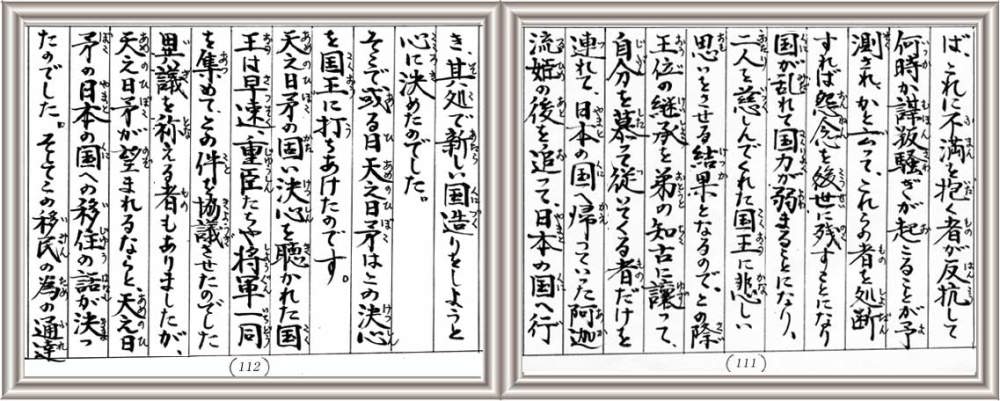 ば、これに不満を抱く者が反抗して
何時か謀叛騒ぎが起こることが予
測され、かと云って、これらの者を処断
すれば怨念を後世に残すことになり
国が乱れて国力が弱まることになり、
二人を慈しんでくれた国王に悲しい
思いをさせる結果となるので、この際
王位の継承を弟の知古に譲って、
自分を慕って従いてくる者だけを
連れて、日本の国へ帰っていった阿迦
流姫の後を追って、日本の国へ行
(111)
き、其処で新しい国造りをしようと
心に決めたのでした。
そこで或る日天之日矛はこの決心
を国王に打ちあけたのです。
天之日矛の固い決心を聴かれた国
王は早速、重臣たちや将軍一同
を集めて、この件を協議させたのでした
異議を称える者もありましたが、
天之日矛が望まれるならと、天之日
矛の日本の国への移住の話が決っ
たのでした。そしてこの移民の為の通達
(112)